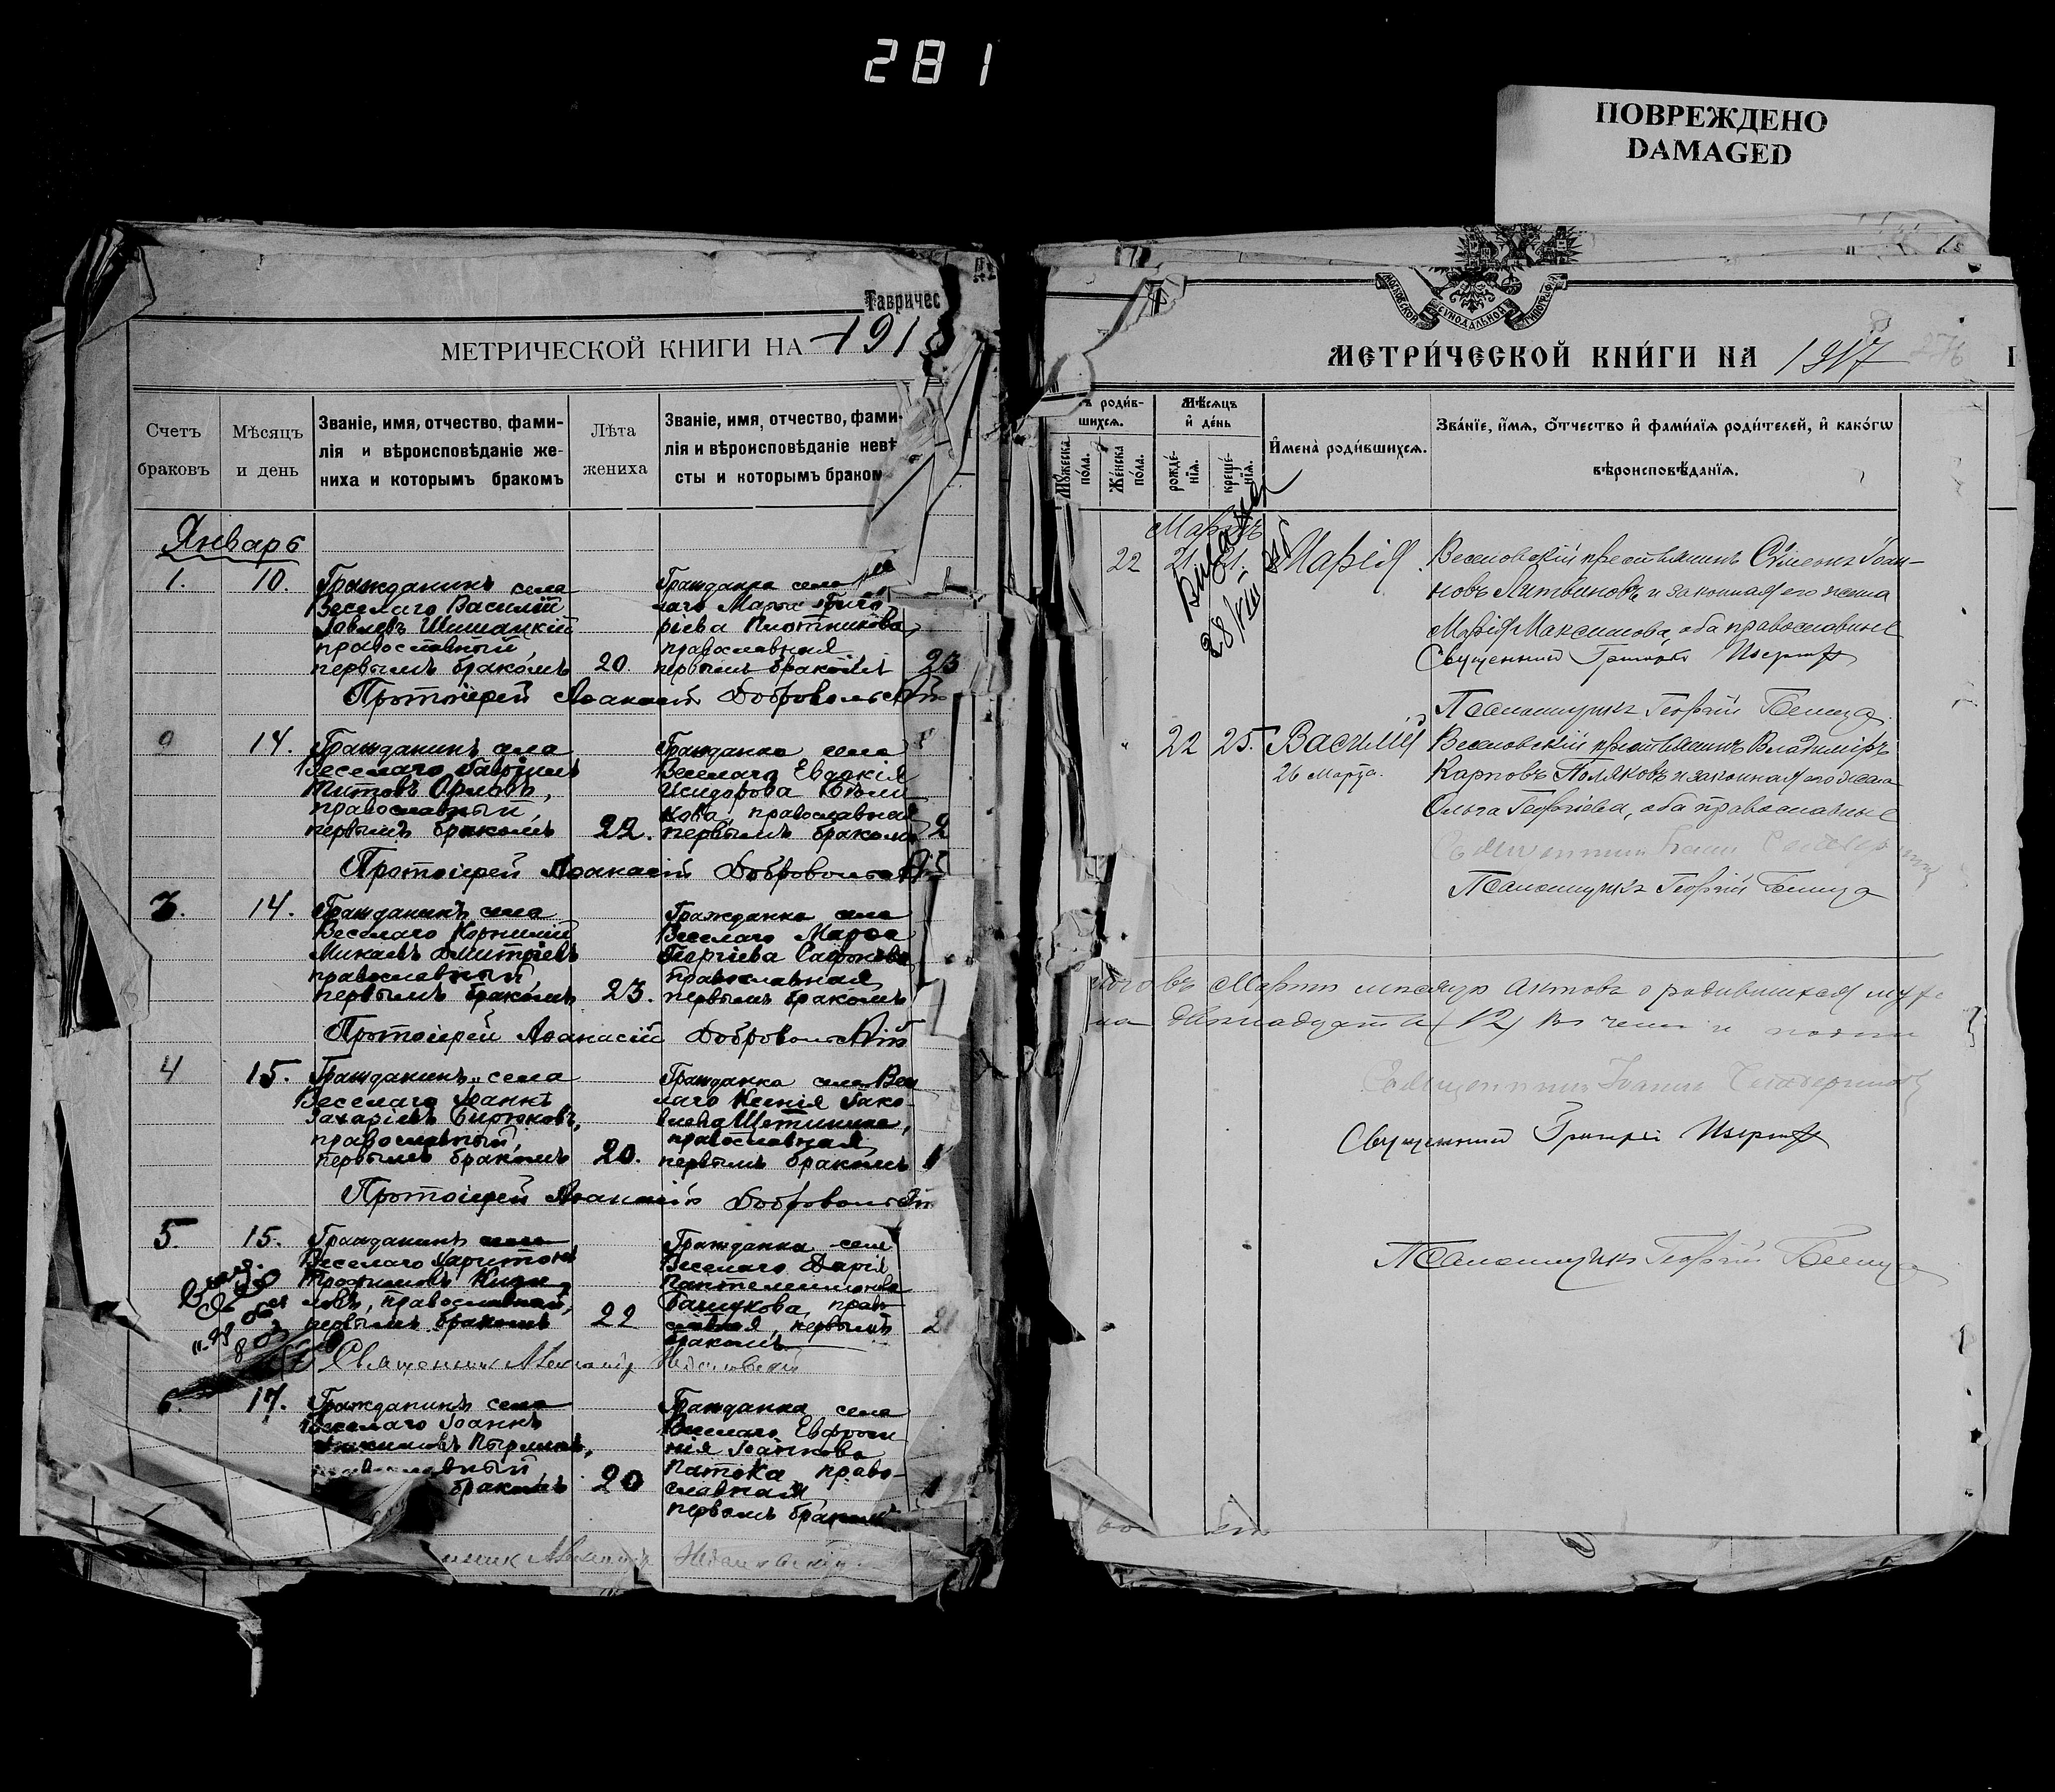 281
ПОВРЕЖДЕНО
DAMAGED
Тавричес
МЕТРИЧЕСКОЙ КНИГИ НА 1918
Счетъ браковъ
Мѣсяцъ и день
Званіе, имя, отчество, фами-
лія и вѣроисповѣданіе же-
ниха и которымъ бракомъ
Лѣта жениха
Званіе, имя, отчество, фами-
лія и вѣроисповѣданіе невѣ
сты и которымъ браком
Январь
1. 10.
Гражданинъ села
Веселаго Василій
Павловъ
православный,
первымъ бракомъ 20.
Гражданка села
лаго Марѳа Григо
ріева Плотникова
православная
первымъ бракомъ 23
Протоіерей Аѳанасій Добровольскій
14.
Гражданинъ села
Веселаго Гавріилъ
Титовъ
православный,
первымъ бракомъ 22.
Гражданка села
Веселаго Евдокія
Исидорова
кова, православная
первымъ бракомъ 2
Протоіерей Аѳанасій Добровольскій
3. 14.
Гражданинъ села
Веселаго Корнилій
Дмитріевъ
православный
первымъ бракомъ 23.
Гражданка села
Веселаго Марѳа
Георгіева Сафонова
православная
первымъ бракомъ
Протоіерей Аѳанасій Добровольскій
4 15.
Гражданинъ села
Веселаго Іоаннъ
Захаріевъ Бирюковъ,
православный,
первымъ бракомъ 20.
Гражданка села Весе
лаго Ксенія Іако-
влева Щетинина,
православная
первымъ бракомъ 1
Протоіерей Аѳанасій Добровольскій
5. 15.
Гражданинъ села
Веселаго Харитонъ
Трофимовъ
ловъ, православный,
первымъ бракомъ 22
Гражданка села
Веселаго Дарія
Пантелеимонова
Башукова, право
славная, первымъ
бракомъ 2
Священникъ
6. 17.
Гражданинъ села
Веселаго Іоаннъ
бракомъ 20
Гражданка села
Веселаго Евфроси
нія Іоаннова
Патока право-
славная
первымъ бракомъ 1
МОСКОВСКОЙ СѴНОДАЛЬНОЙ ТИПОГРАФІИ
МЕТРИ́ЧЕСКОЙ КНИ́ГИ НА 1917
ъ роди́в-
шихся.
Мꙋ́жеска по́ла.
Же́нска по́ла.
Мѣ́сяцъ и҆ де́нь
рожде́-
нїѧ.
креще́-
нїѧ.
И҆мена̀ роди́вшихсѧ.
Зва́нїе, и҆́мѧ, ѻ҆́тчество и҆ фами́лїѧ роди́телей, и҆ како́гѡ
вѣроисповѣ́данїѧ.
Мартъ
22 21. 21. Марія
28/VIII
Веселовскій крестьянинъ Сѵмеонъ Іоан-
новъ Литвиновъ и законная его жена
Марія Максимова, оба православные
Священникъ Григорій
Псаломщикъ Георгій
22 25. Василій
26 Марта.
Веселовскій крестьянинъ Владиміръ
Карповъ Поляковъ и законная его жена
Ольга Георгіева, оба православные
Священникъ Іоаннъ
Псаломщикъ Георгій
въ Мартѣ мѣсяцѣ актовъ о родившихся муже
двѣнадцать (12) въ чемъ и
Священникъ Іоаннъ
Священникъ Григорій
Псаломщикъ Георгій